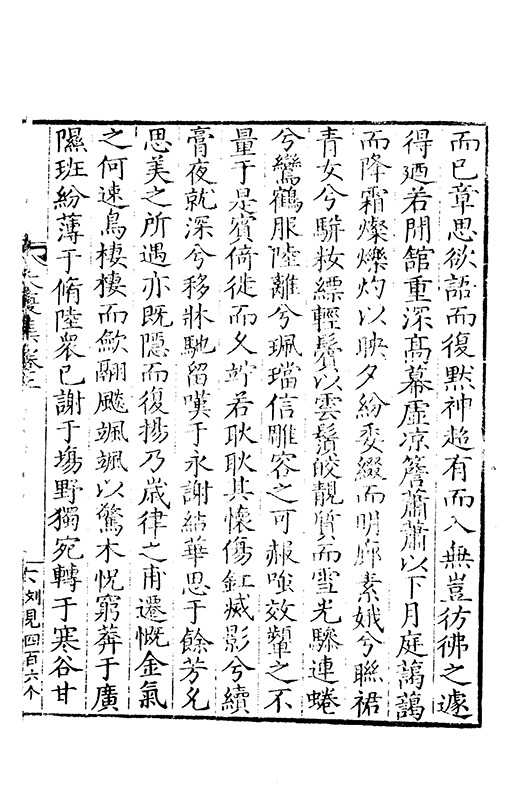 而已章思欲語而復默神超有而入無豈彷彿之遽
得廼若閒舘重深髙幕虛凉簷蕭蕭以下月庭藹藹
而降霜燦爍灼以映夕紛委綴而明廊素娥兮聯裙
青女兮騈妝縹輕鬢以雲鬟皎靚質而雪光驂連蜷
兮鸞鶴服陸離兮珮璫信雕容之可赧嗤效顰之不
量于是賓倚徙而久竚若耿耿其懷傷釭滅影兮續
膏夜就深兮移牀馳留嘆于永謝結華思于餘芳允
思美之所遇亦既隱而復揚乃嵗律之甫遷慨金氣
之何速鳥棲棲而歛翮飈颯颯以驚木怳窮莽于廣
隰班紛薄于脩陸衆已謝于塲野獨宛轉于寒谷甘
集卷
六 刘見四百六个